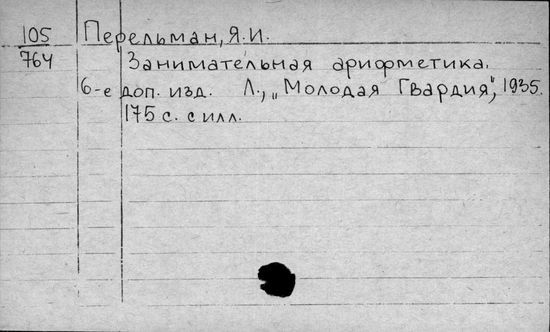 105 Перельман, Я.И.
764 Занимательная арифметика.
6-е доп. изд. Л., „Молодая Гвардия", 1935.
175 с. с илл.